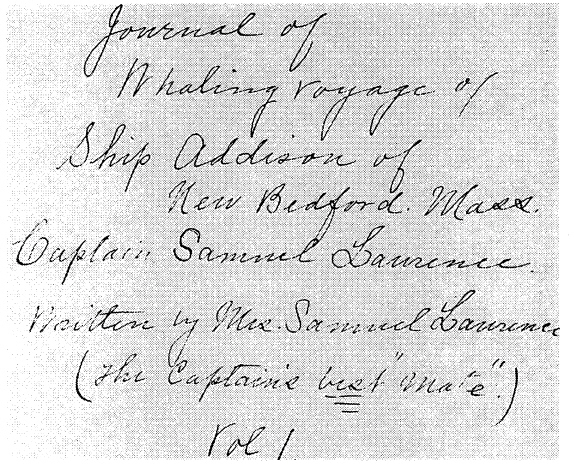 Journal of
Whaling voyage of
Ship Addison of
New Bedford. Mass.
Captain Samuel Lawrence.
Written by Mrs. Samuel Lawrence
(The Captain's best "Mate".)
Vol 1